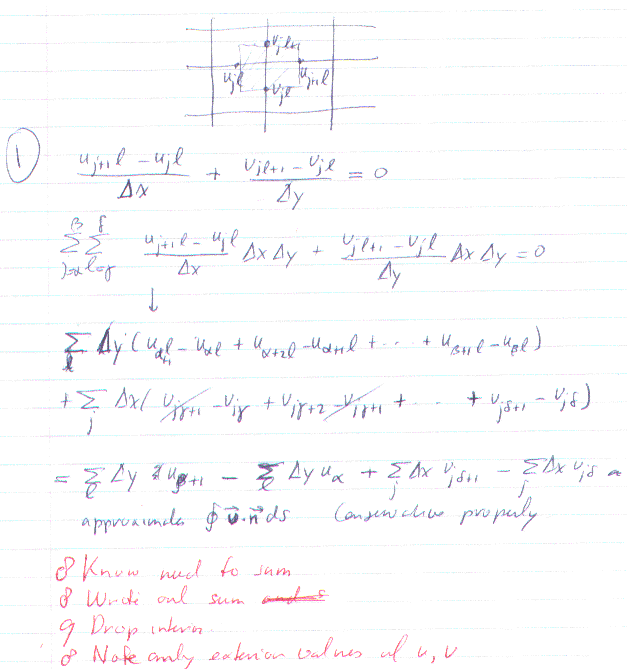 v_{jl+1}
u_{jl} u_{j+1l}
v_{jl}
1
\frac{u_{j+1l} - u_{jl}}{Δx} + \frac{v_{jl+1} - v_{jl}}{Δy} = 0
\sum_{j=α}^{β} \sum_{l=γ}^{δ} \frac{u_{j+1l} - u_{jl}}{Δx} Δx Δy + \frac{v_{jl+1} - v_{jl}}{Δy} Δx Δy = 0
↓
\sum_{l} Δy (u_{α+1l} - u_{αl} + u_{α+2l} - u_{α+1l} + ... + u_{β+1l} - u_{βl})
+ \sum_{j} Δx (v_{jγ+1} - v_{jγ} + v_{jγ+2} - v_{jγ+1} + ... + v_{jδ+1} - v_{jδ})
= \sum_{l} Δy u_{β+1} - \sum_{l} Δy u_{α} + \sum_{j} Δx v_{jδ+1} - \sum_{j} Δx v_{jδ}
approximates ∮ \vec{v}·\vec{n} ds Conservative property
8 Know need to sum
8 Write out sum
9 Drop interior
8 Note only exterior values of u, v